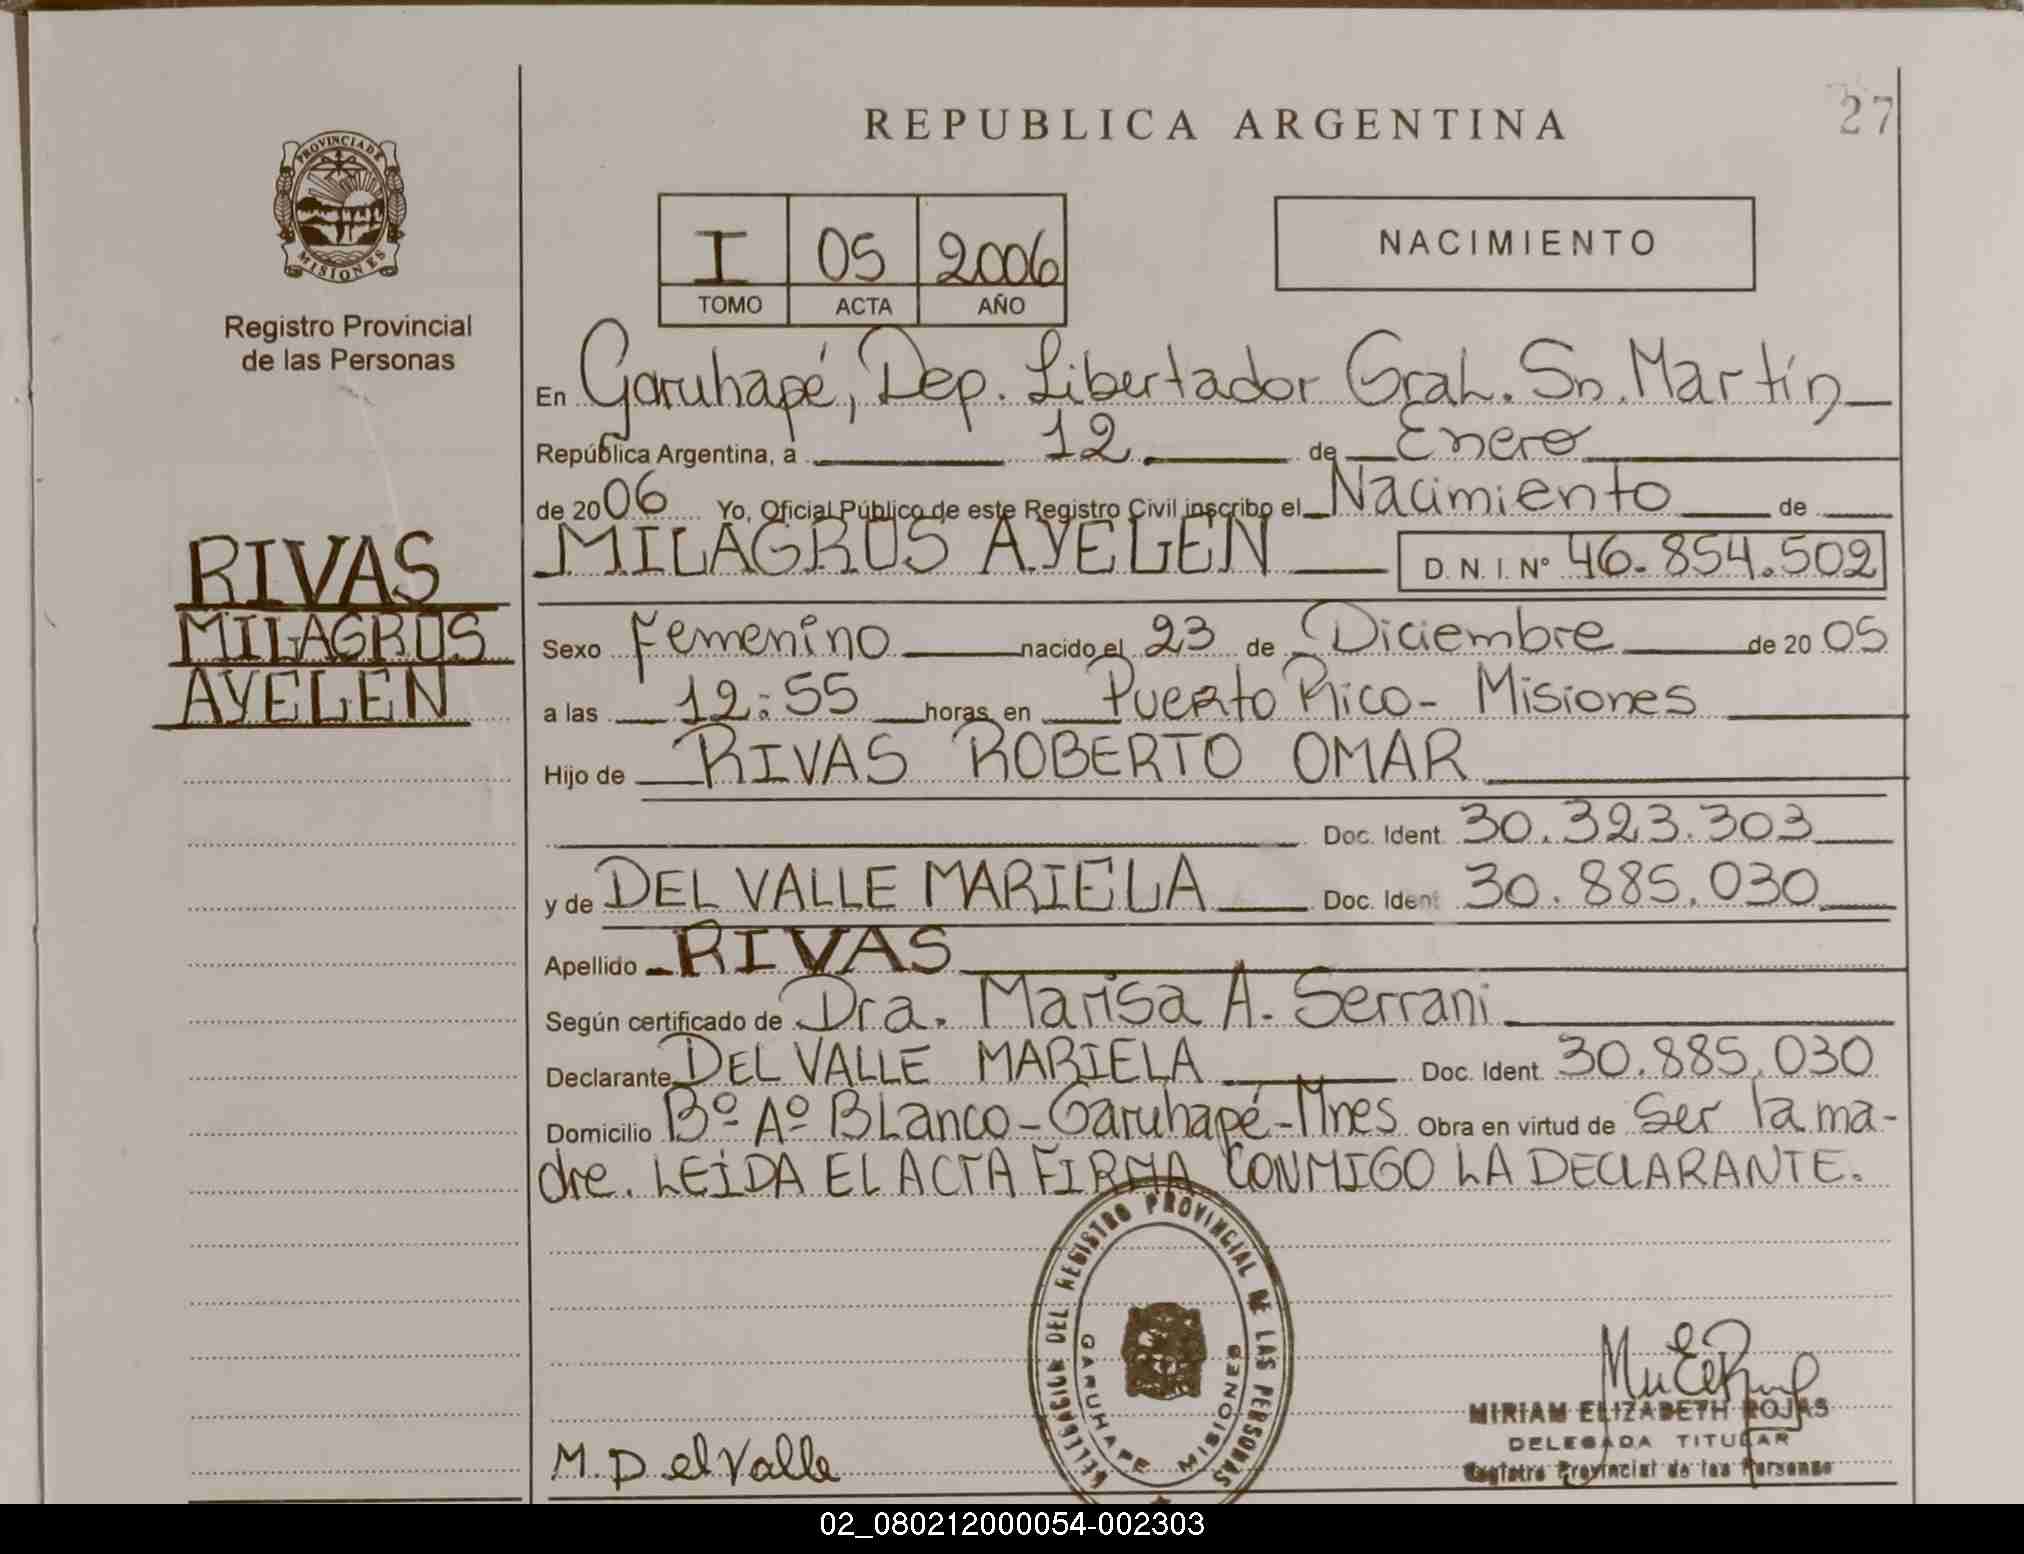 REPUBLICA ARGENTINA
27
PROVINCIA DE
MISIONES
Registro Provincial
de las Personas
I 05 2006
TOMO ACTA AÑO
NACIMIENTO
En Garuhapé, Dep. Libertador Gral. Sn. Martín
República Argentina, a 12 de Enero
de 2006 Yo, Oficial Público de este Registro Civil inscribo el Nacimiento de
MILAGROS AYELEN D.N.I. Nº 46.854.502
RIVAS
MILAGROS
AYELEN
Sexo Femenino nacido el 23 de Diciembre de 2005
a las 12:55 horas en Puerto Rico - Misiones
Hijo de RIVAS ROBERTO OMAR
Doc. Ident. 30.323.303
y de DEL VALLE MARIELA Doc. Ident 30.885.030
Apellido RIVAS
Según certificado de Dra. Marisa A. Serrani
Declarante DEL VALLE MARIELA Doc. Ident. 30.885.030
Domicilio Bº Aº Blanco - Garuhapé - Mnes Obra en virtud de Ser la ma-
dre. LEIDA EL ACTA FIRMA CONMIGO LA DECLARANTE.
DELEGACION DEL REGISTRO PROVINCIAL DE LAS PERSONAS
GARUHAPE MISIONES
M. Del Valle
MIRIAM ELIZABETH ROJAS
DELEGADA TITULAR
Registro Provincial de las Personas
02_080212000054-002303